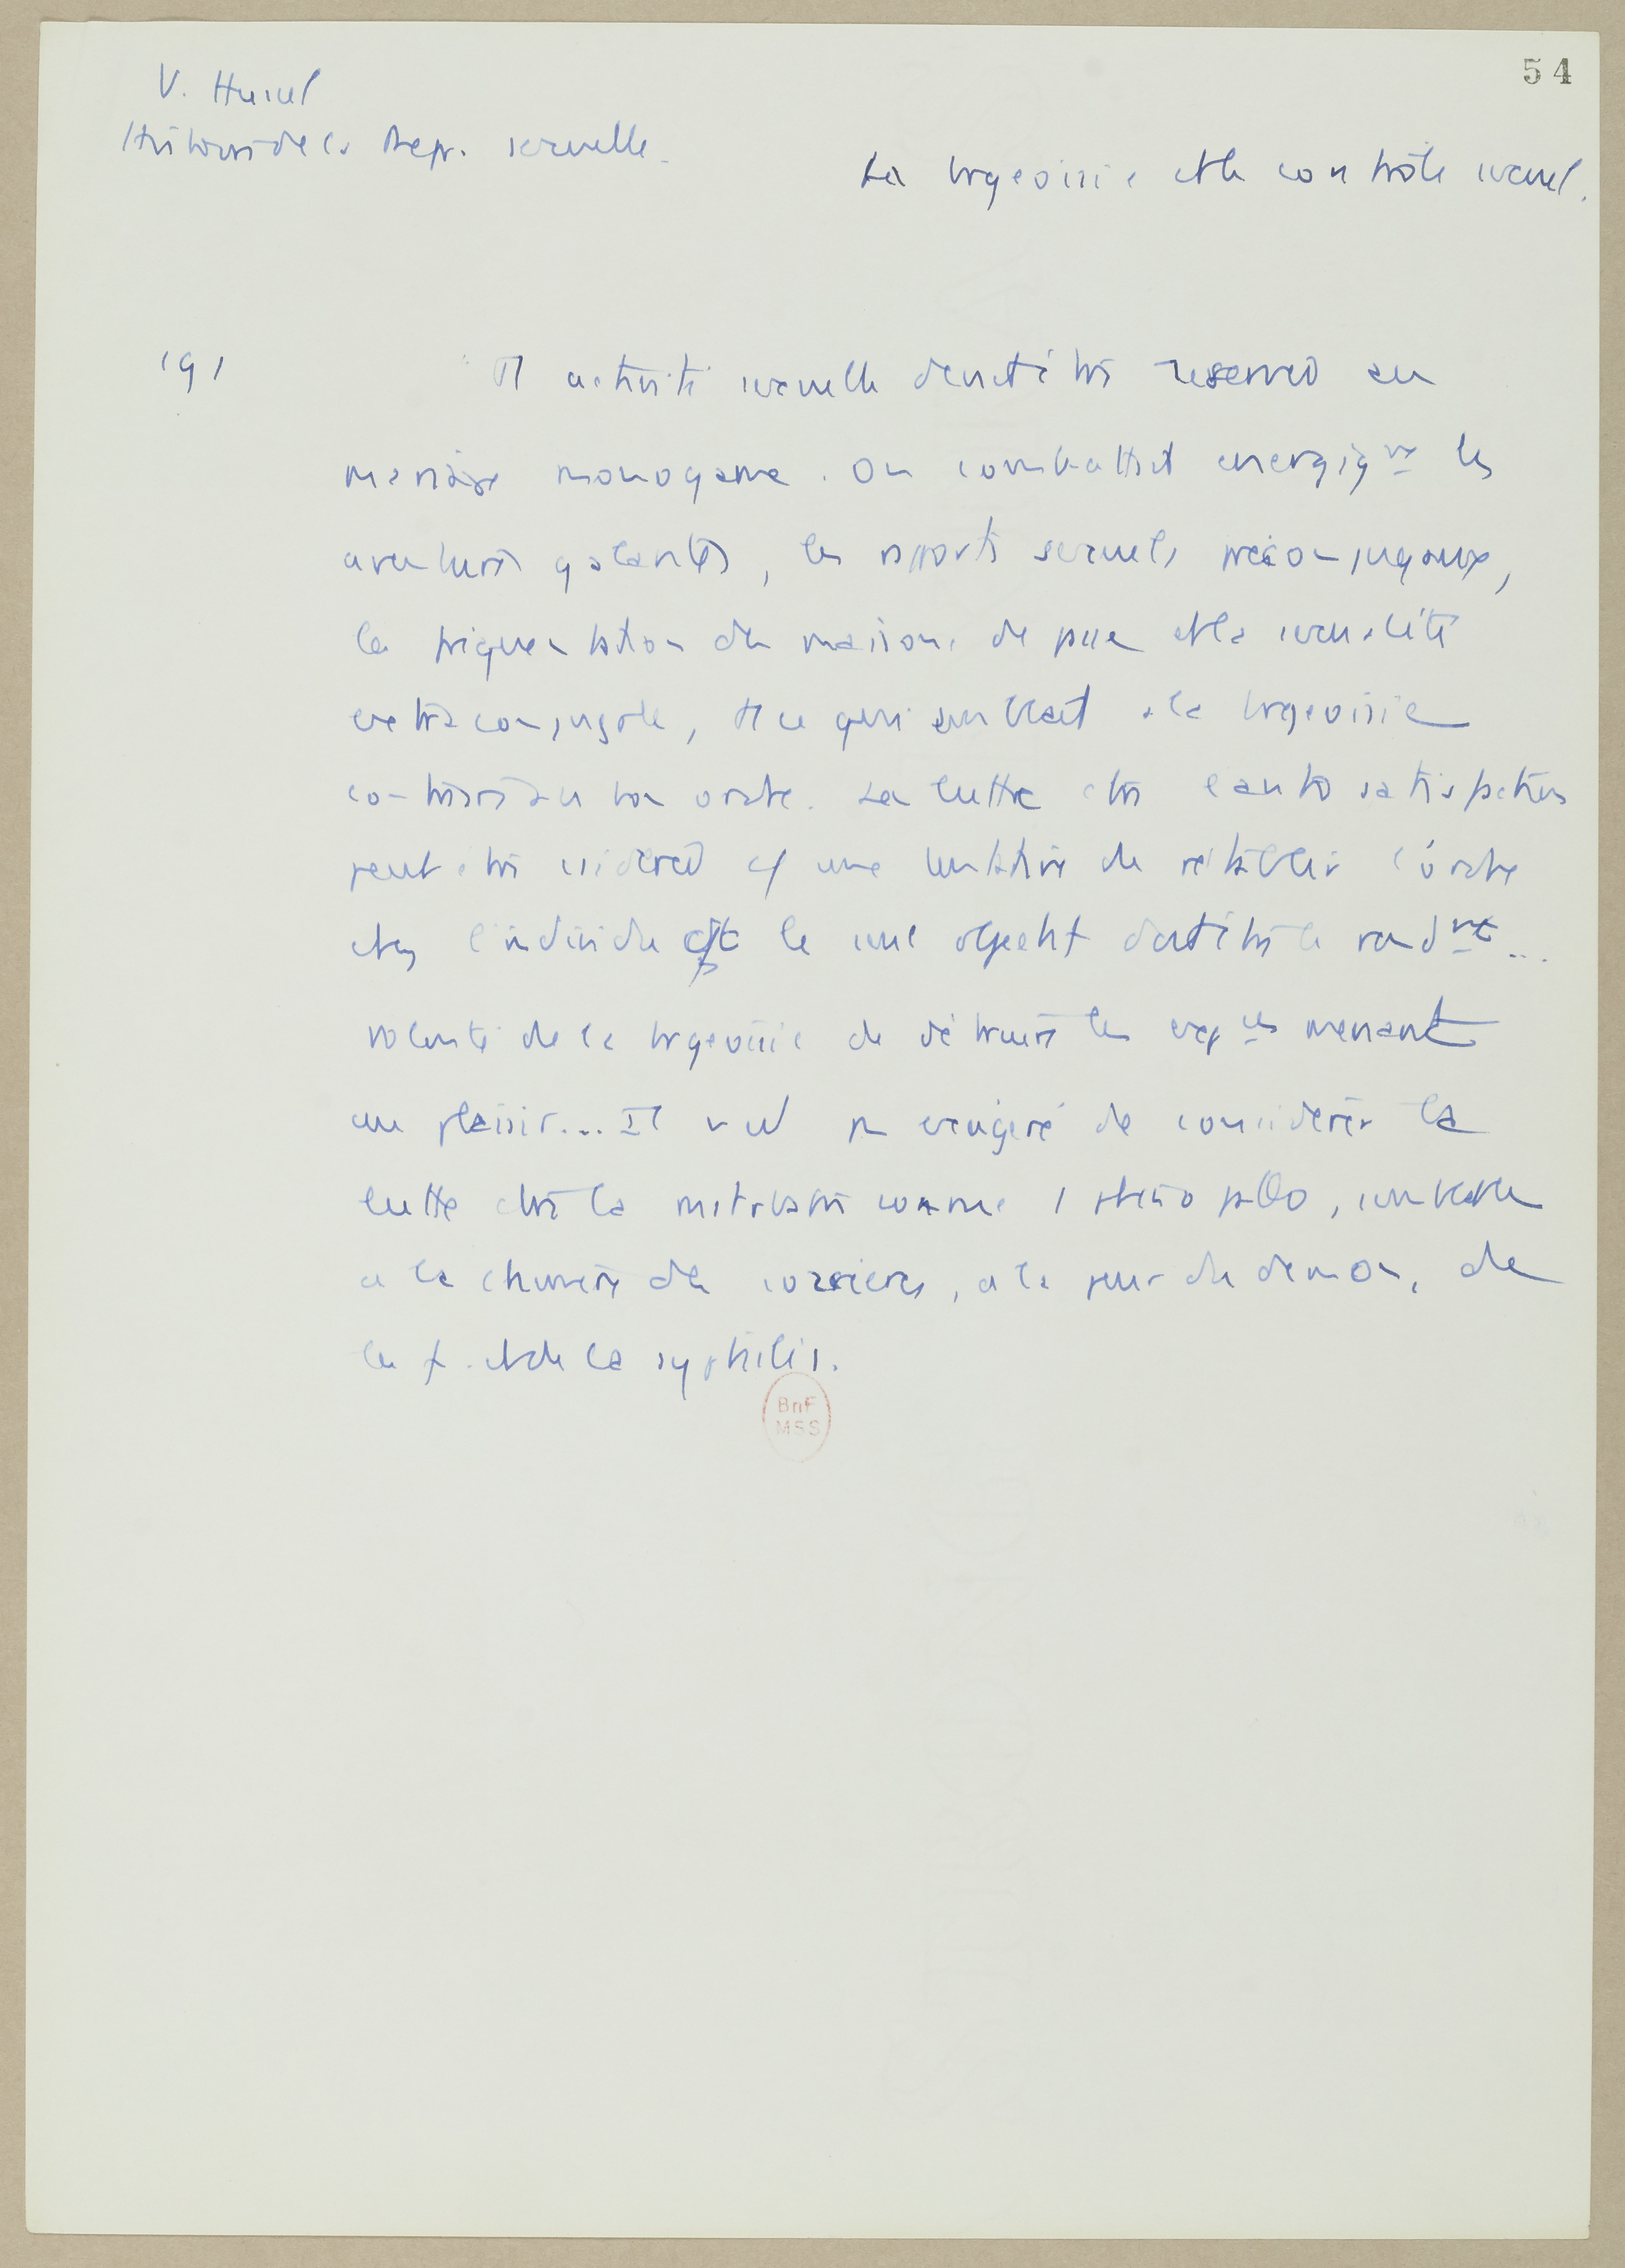 54
V. Hussel
Histoire de la Repr. sexuelle.
La brgeoisie et le contrôle sexuel.
191
Tt activité sexuelle devait être reservée au
mariage monogame. On combattait energiqt les
aventures galantes, les rapports sexuels préconjugaux,
la fréquentation des maisons de passe et la sexualité
extraconjugale, tt ce qui semblait à la brgeoisie
contraire au bon ordre. La lutte ctre l'autosatisfaction
peut être cidérée cf une tentative de rétablir l'ordre
chez l'individu le seul objectif devait être le rendmt...
Volonté de la brgeoisie de détruire les menant
au plaisir... Il n'est pas exagéré de considérer la
lutte ctre la mastrbation comme 1 phéno patho, semblable
a la chimère des sorcières, a la peur du demon, de
la f. et de la syphilis.
BnF
MSS